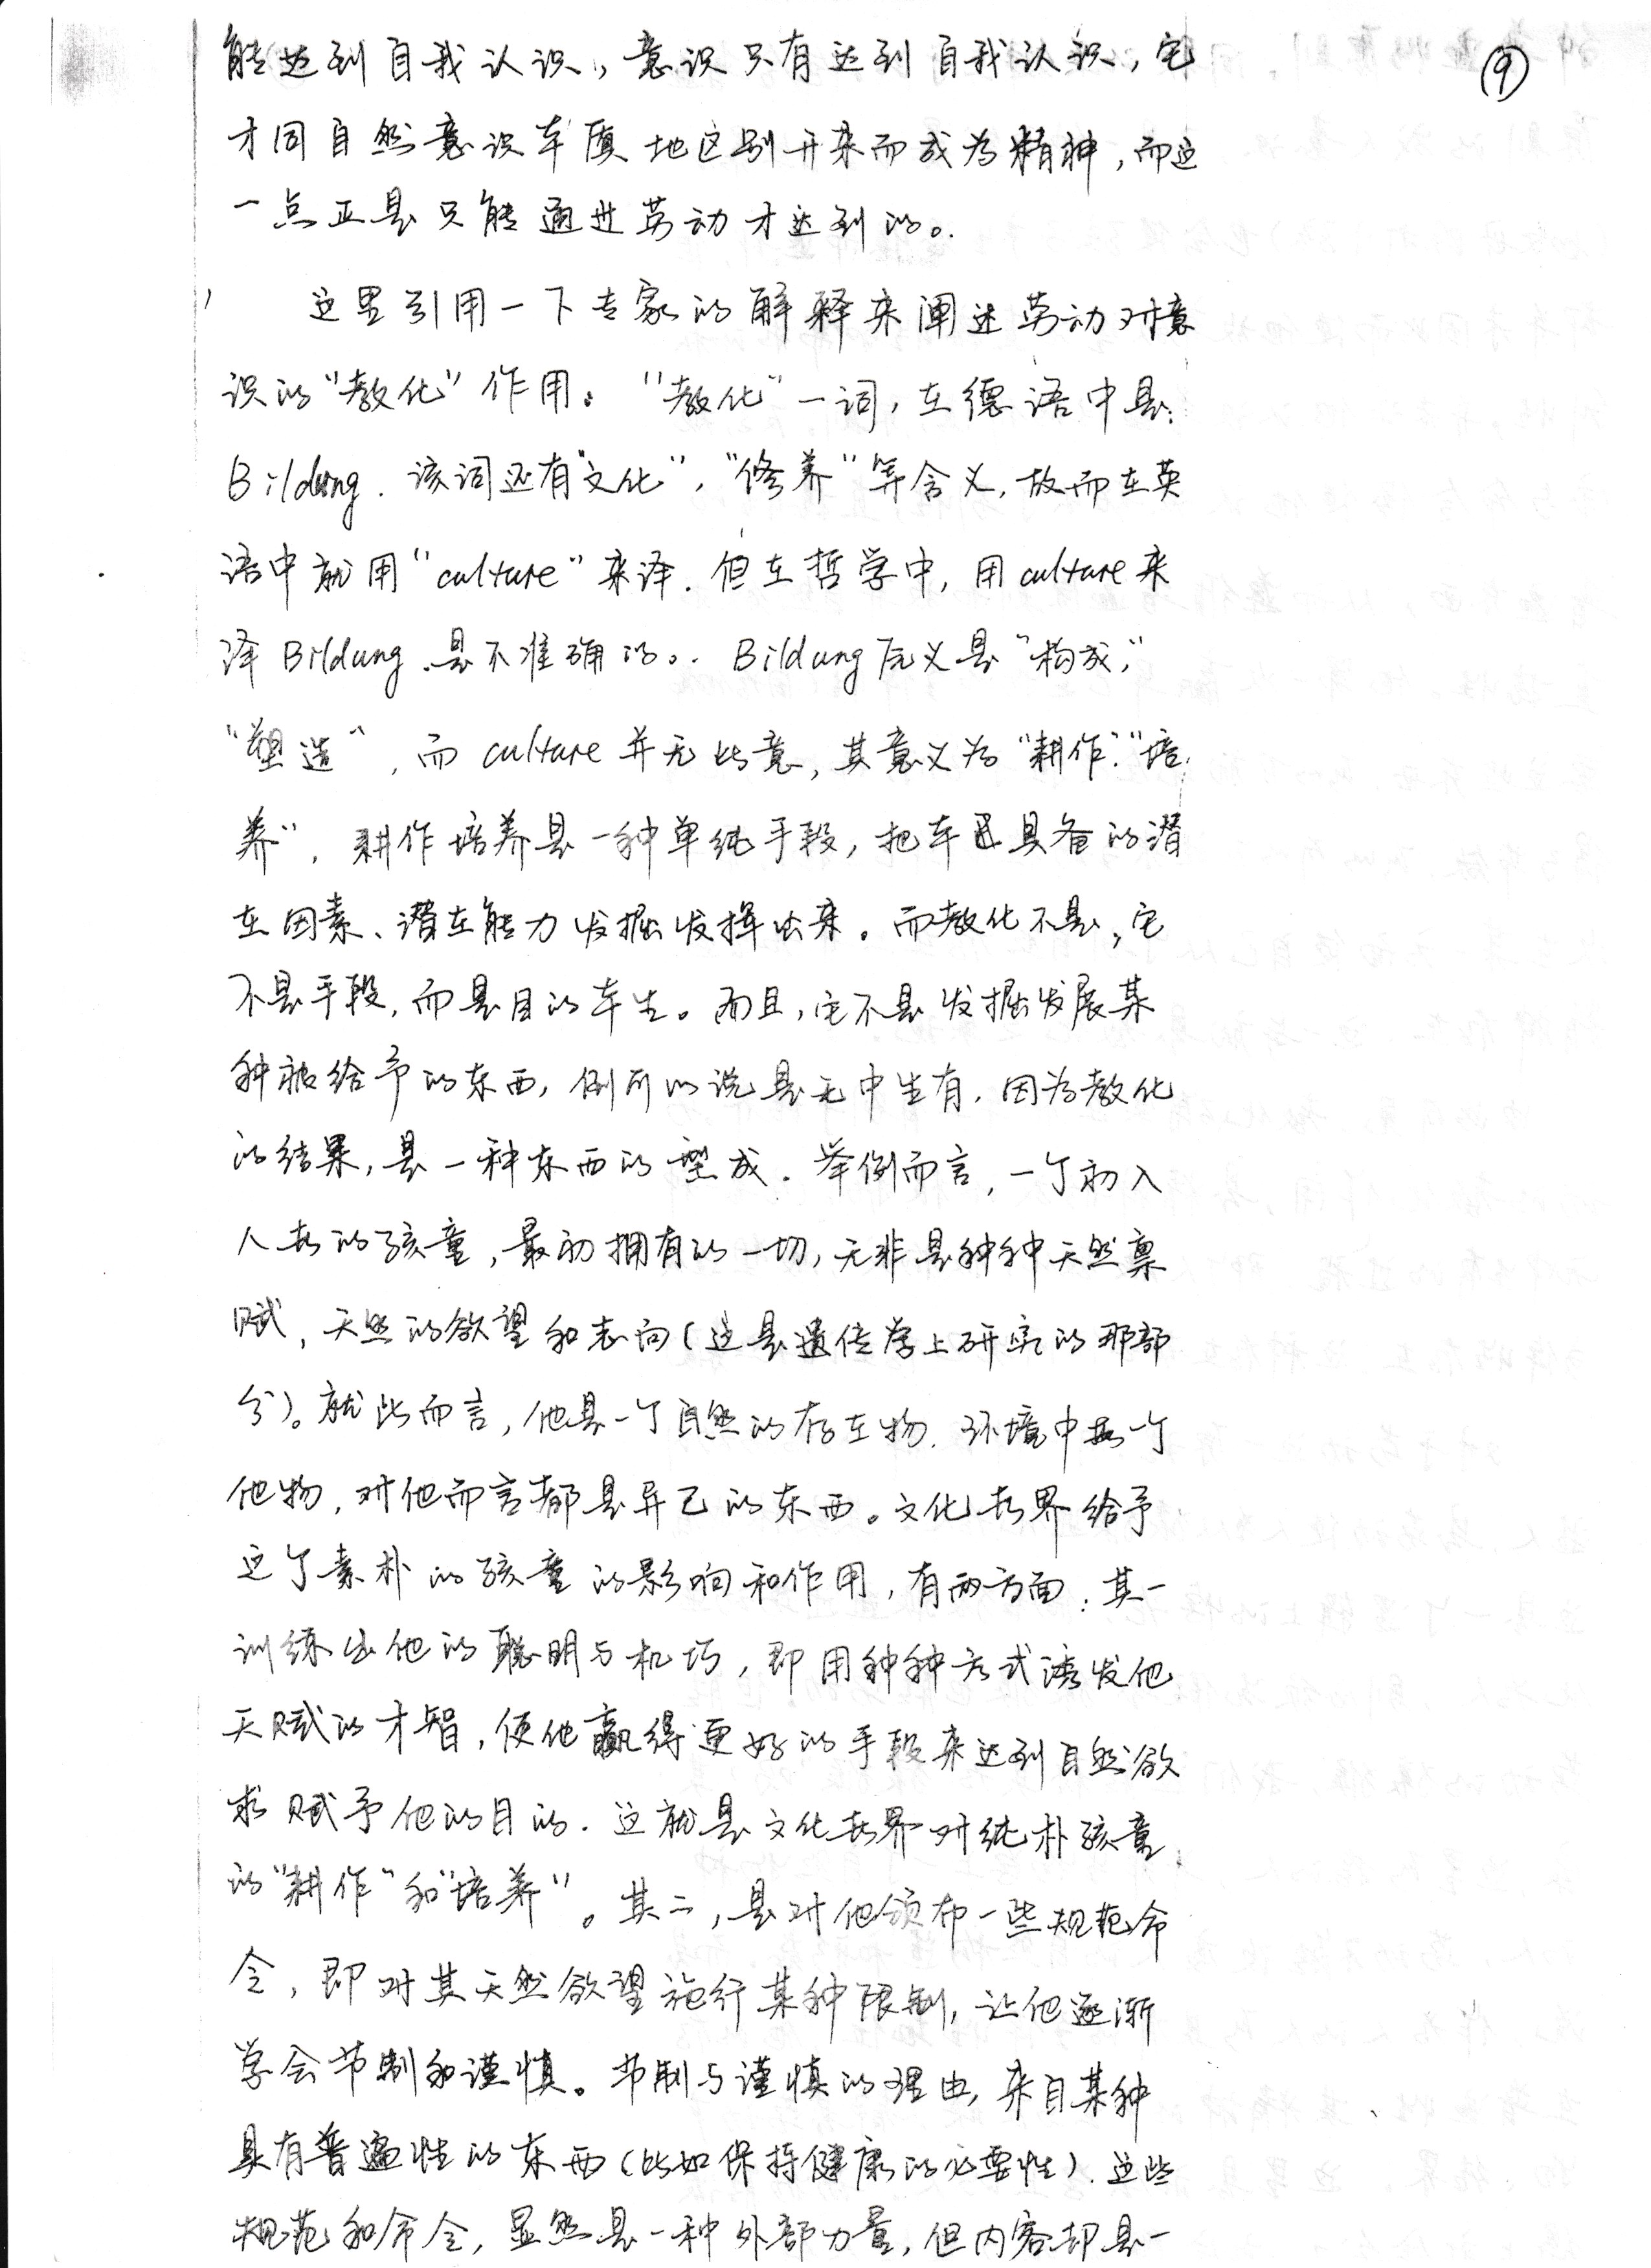 能达到自我认识，意识只有达到自我认识，它
⑨
才同自然意识本质地区别开来而成为精神，而这
一点正是只能通过劳动才达到的。
这里引用一下专家的解释来阐述劳动对意
识的“教化”作用。“教化”一词，在德语中是
Bildung．该词还有“文化”，“修养”等含义，故而在英
语中就用“culture”来译．但在哲学中，用culture来
译Bildung是不准确的。Bildung原义是“构成”，
“塑造”，而culture并无此意，其意义为“耕作”“培
养”，耕作培养是一种单纯手段，把本已具备的潜
在因素、潜在能力发掘发挥出来。而教化不是，它
不是手段，而是目的本生。而且，它不是发掘发展某
种被给予的东西，倒可以说是无中生有，因为教化
的结果，是一种东西的型成．举例而言，一个初入
人世的孩童，最初拥有的一切，无非是种种天然禀
赋，天然的欲望和志向（这是遗传学上研究的那部
分）。就此而言，他是一个自然的存在物．环境中每一个
他物，对他而言都是异己的东西。文化世界给予
这个素朴的孩童的影响和作用，有两方面：其一
训练出他的聪明与机巧，即用种种方式诱发他
天赋的才智，使他赢得更好的手段来达到自然欲
求赋予他的目的．这就是文化世界对纯朴孩童
的“耕作”和“培养”。其二，是对他颁布一些规范命
令，即对其天然欲望施行某种限制，让他逐渐
学会节制和谨慎。节制与谨慎的理由，来自某种
具有普遍性的东西（比如保持健康的必要性）．这些
规范和命令，显然是一种外部力量，但内容却是一